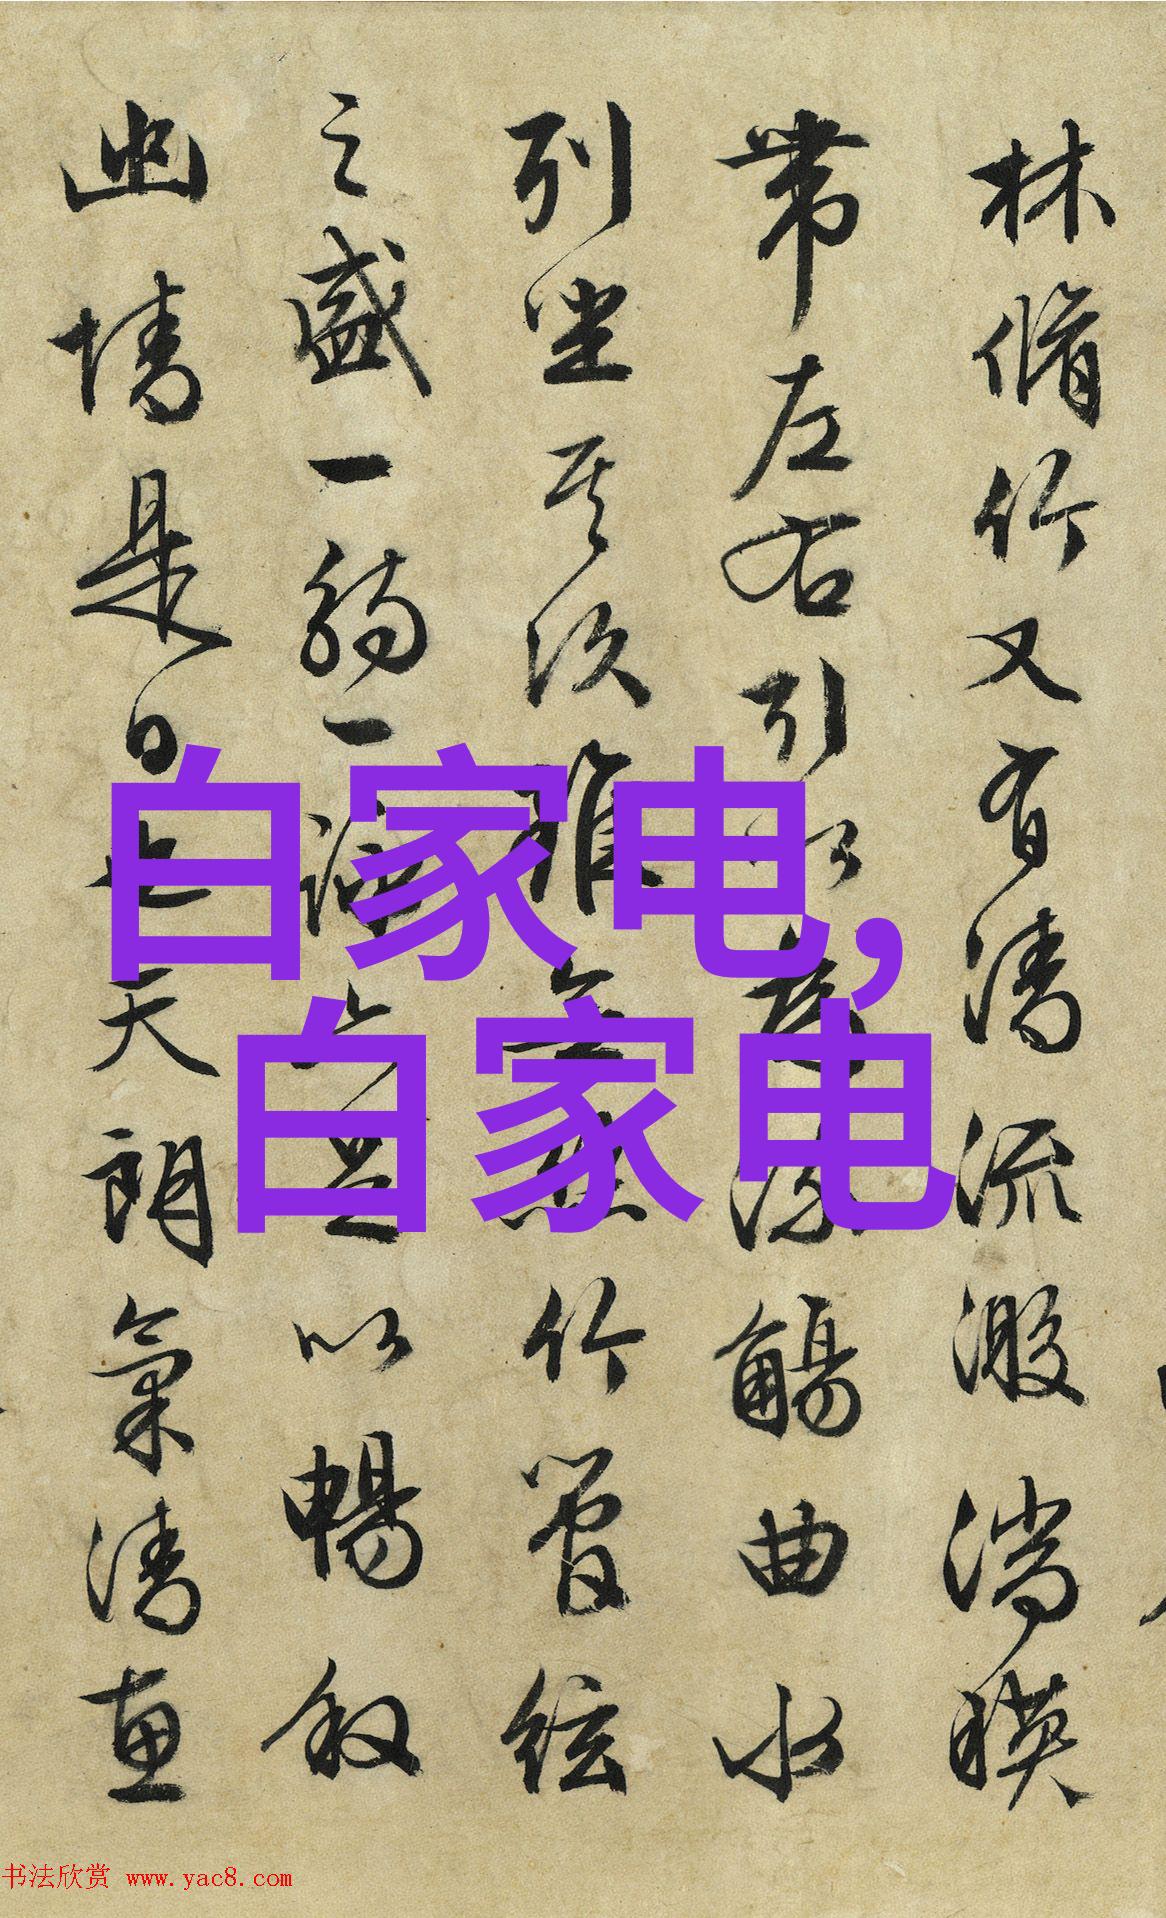 林脩竹又有清流激湍暎
帶左右引以為流觴曲水
列坐其次雖無絲竹管絃
之盛一觴一詠亦足以暢敘
幽情是日也天朗氣清惠
白家电,
白家电
书法欣赏 www.yac8.com